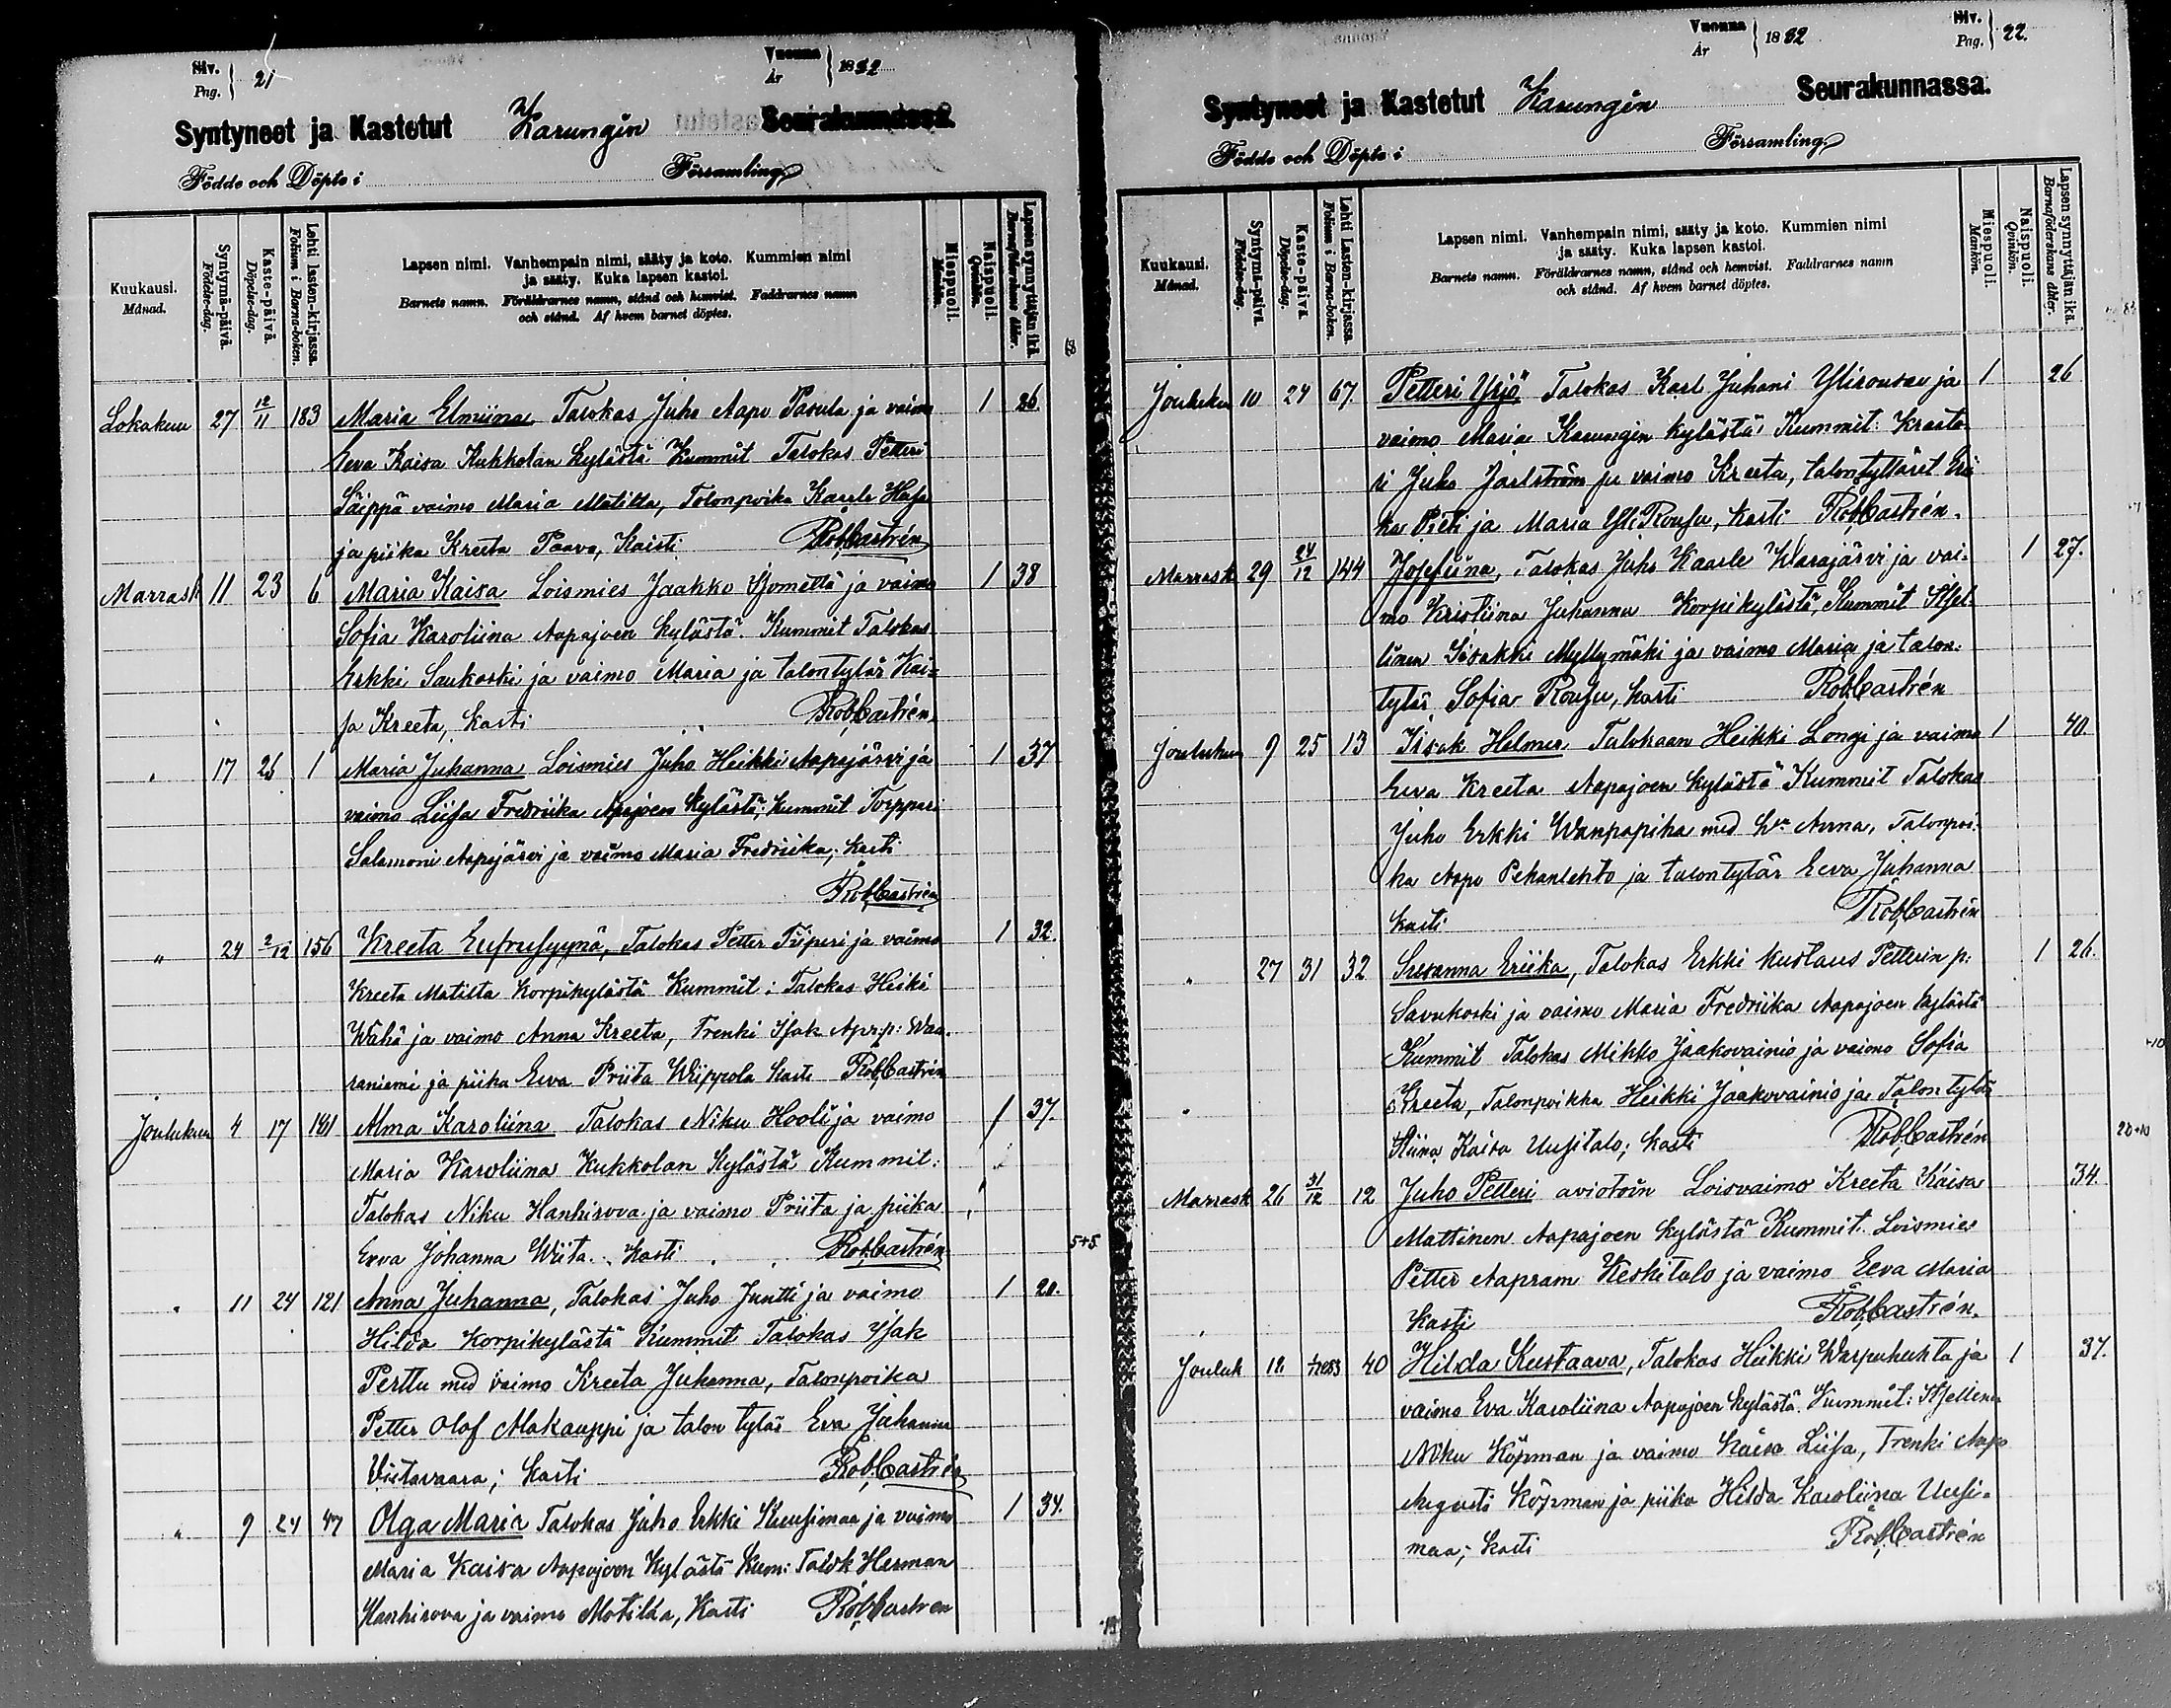 Siv.
Pag. 21
Vuonna
År 1882
Syntyneet ja Kastetut Karungin Seurakunnassa.
Födde och Döpte i Församling
Kuukausi.
Månad.
Syntymä-päivä.
Födelse-dag.
Kaste-päivä.
Döpelse-dag.
Lehti lasten-kirjassa.
Folium i Barna-boken.
Lapsen nimi. Vanhempain nimi, sääty ja koto. Kummien nimi
ja sääty. Kuka lapsen kastoi.
Barnets namn. Föräldrarnes namn, stånd och hemvist. Faddrarnes namn
och stånd. Af hvem barnet döptes.
Miespuoli.
Mankön.
Naispuoli.
Qvinkön.
Lapsen synnyttäjän ikä.
Barnaföderskans ålder.
Lokakuu 27 12/11 183 Maria Elmiina Talokas Juho Aapo Pasula ja vaimo 1 26.
Eeva Kaisa Kukkolan kylästä. Kummit Talokas Petteri
Säippä vaimo Maria Matilda, Talonpoika Kaarle
ja piika Kreeta Paavo, Kasti Rob Castrén
Marrask 11 23 6 Maria Kaisa Loismies Jaakko ja vaimo 1 38
Sofia Karoliina Aapajoen kylästä. Kummit Talokas
Erkki Saukoski ja vaimo Maria ja talontytär Kai-
sa Kreeta, kasti Rob Castrén
" 17 26 1 Maria Juhanna Loismies Juho Heikki Aapajärvi ja 1 37
vaimo Liisa Fredriika Apajoen kylästä. kummit Torppari
Salamoni Aapajärvi ja vaimo Maria Fredriika, kasti
Rob Castrén
" 24 2/12 156 Kreeta Eufrusyyna, Talokas Petter Piiperi ja vaimo 1 32.
Kreeta Matilta Korpikylästä Kummit: Talokas Heiki
Wähä ja vaimo Anna Kreeta, Trenki Isak Apr:p: Waa-
raniemi ja piika Eeva Priita Wiippola kasti Rob Castrén
Joulukuu 4 17 181 Alma Karoliina Talokas Niku Hooli ja vaimo 1 37.
Maria Karoliina Kukkolan kylästä Kummit:
Talokas Niku Hanhirova ja vaimo Priita ja piika
Eeva Johanna Wiita. Kasti Rob Castrén
5+5
" 11 24 121 Anna Juhanna, Talokas Juho Juntti ja vaimo 1 20.
Hilda Korpikylästä Kummit Talokas Isak
Perttu med vaimo Kreeta Juhanna, Talonpoika
Petter Olof Alakauppi ja talon tytär Eva Juhanna
Viitavaara; kasti Rob Castrén
" 9 24 47 Olga Maria Talokas Juho Erkki Kuusimaa ja vaimo 1 34.
Maria Kaisa Aapajoen kylästä Kum: Talok Herman
Hanhirova ja vaimo Matilda, Kasti Rob Castren
Vuonna
År 1882
Siv.
Pag. 22.
Syntyneet ja Kastetut Karungin Seurakunnassa.
Födde och Döpte i Församling
Kuukausi.
Månad.
Syntymä-päivä.
Födelse-dag.
Kaste-päivä.
Döpelse-dag.
Lehti lasten-kirjassa.
Folium i Barna-boken.
Lapsen nimi. Vanhempain nimi, sääty ja koto. Kummien nimi
ja sääty. Kuka lapsen kastoi.
Barnets namn. Föräldrarnes namn, stånd och hemvist. Faddrarnes namn
och stånd. Af hvem barnet döptes.
Miespuoli.
Mankön.
Naispuoli.
Qvinkön.
Lapsen synnyttäjän ikä.
Barnaföderskans ålder.
Joulukuu 10 24 67 Petteri Yrjö Talokas Karl Juhani Ylirousu ja 1 26
vaimo Maria Karungin kylästä Kummit: kraato
ri Juho Jarlström ja vaimo Kreeta, talontyttäret Erii
ka Pieti ja Maria YliRousu, kasti Rob Castrén.
Marrask 29 24/12 144 Josefiina, Talokas Juho Kaarle Karajärvi ja vai- 1 27.
mo Kristiina Juhanna Korpikylästä, Kummit Itsel-
linen Iisakki Myllymäki ja vaimo Maria ja talon-
tytär Sofia Rousu, kasti Rob Castrén
Joulukuu 9 25 13 Iisak Helmer Talokaan Heikki Longi ja vaimo 1 40
Eeva Kreeta Aapajoen kylästä Kummit Talokas
Juho Erkki Wanpapiha med h:u Anna, Talonpoi-
ka Aapo Pekanlehto ja talontytär Eeva Juhanna
kasti Rob Castrén
" 27 31 32 Susanna Eriika, Talokas Erkki Kustaus Petterin p: 1 26.
Savukoski ja vaimo Maria Fredriika Aapajoen kylästä
Kummit Talokas Mikko Jaakovainio ja vaimo Sofia
Kreeta, Talonpoikka Heikki Jaakovainio ja Talontytär
Stiina Kaisa Uusitalo; kasti Rob Castrén
20+10
Marrask 26 31/12 12 Juho Petteri aviotoin Loisvaimo Kreeta Kaisa 34
Mattinen Aapajoen kylästä Kummit. Loismies
Petter Aapram Keskitalo ja vaimo Eeva Maria
kasti Rob Castrén.
Jouluk 12 40 Hilda Kustaava, Talokas Heikki Warpuhuhta ja 1 37.
vaimo Eva Karoliina Aapajoen kylästä. Kummit: Itsellinen
Niku Köpman ja vaimo Kaisa Liisa, Trenki Aapo
Augusti Köpman ja piika Hilda Karoliina Uusi-
maa; kasti Rob Castrén